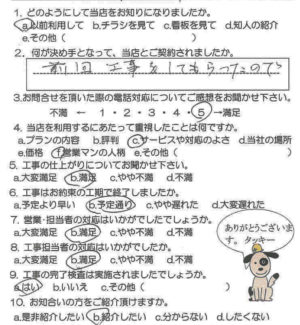 1. どのようにして当店をお知りになりましたか。
a.以前利用して b.チラシを見て c.看板を見て d.知人の紹介
e.その他（　　　　　　　　　　）
2. 何が決め手となって、当店とご契約されましたか。
前回 工事をしてもらったので
3.お問合せを頂いた際の電話対応についてご感想をお聞かせ下さい。
不満 ← 1・2・3・4・5 →満足
4. 当店を利用するにあたって重視したことは何ですか。
a.プランの内容 b.評判 c.サービスや対応のよさ d.当社の場所
e.価格 f.営業マンの人柄 e.その他（　　　　　　）
5. 工事の仕上がりについてお聞かせ下さい。
a.大変満足 b.満足 c.やや不満 d.不満
6. 工事はお約束の工期で終了しましたか。
a.予定より早い b.予定通り c.やや遅れた d.大変遅れた
7. 営業・担当者の対応はいかがでしたでしょうか。
a.大変満足 b.満足 c.やや不満 d.不満
8. 工事担当者の対応はいかがでしたか。
a.大変満足 b.満足 c.やや不満 d.不満
9. 工事の完了検査は実施されましたでしょうか。
a.はい b.いいえ c.その他（　　　　　）
10. お知合いの方をご紹介頂けますか。
a.是非紹介したい b.紹介したい c.分からない d.したくない
ありがとうございま
す。タッキー